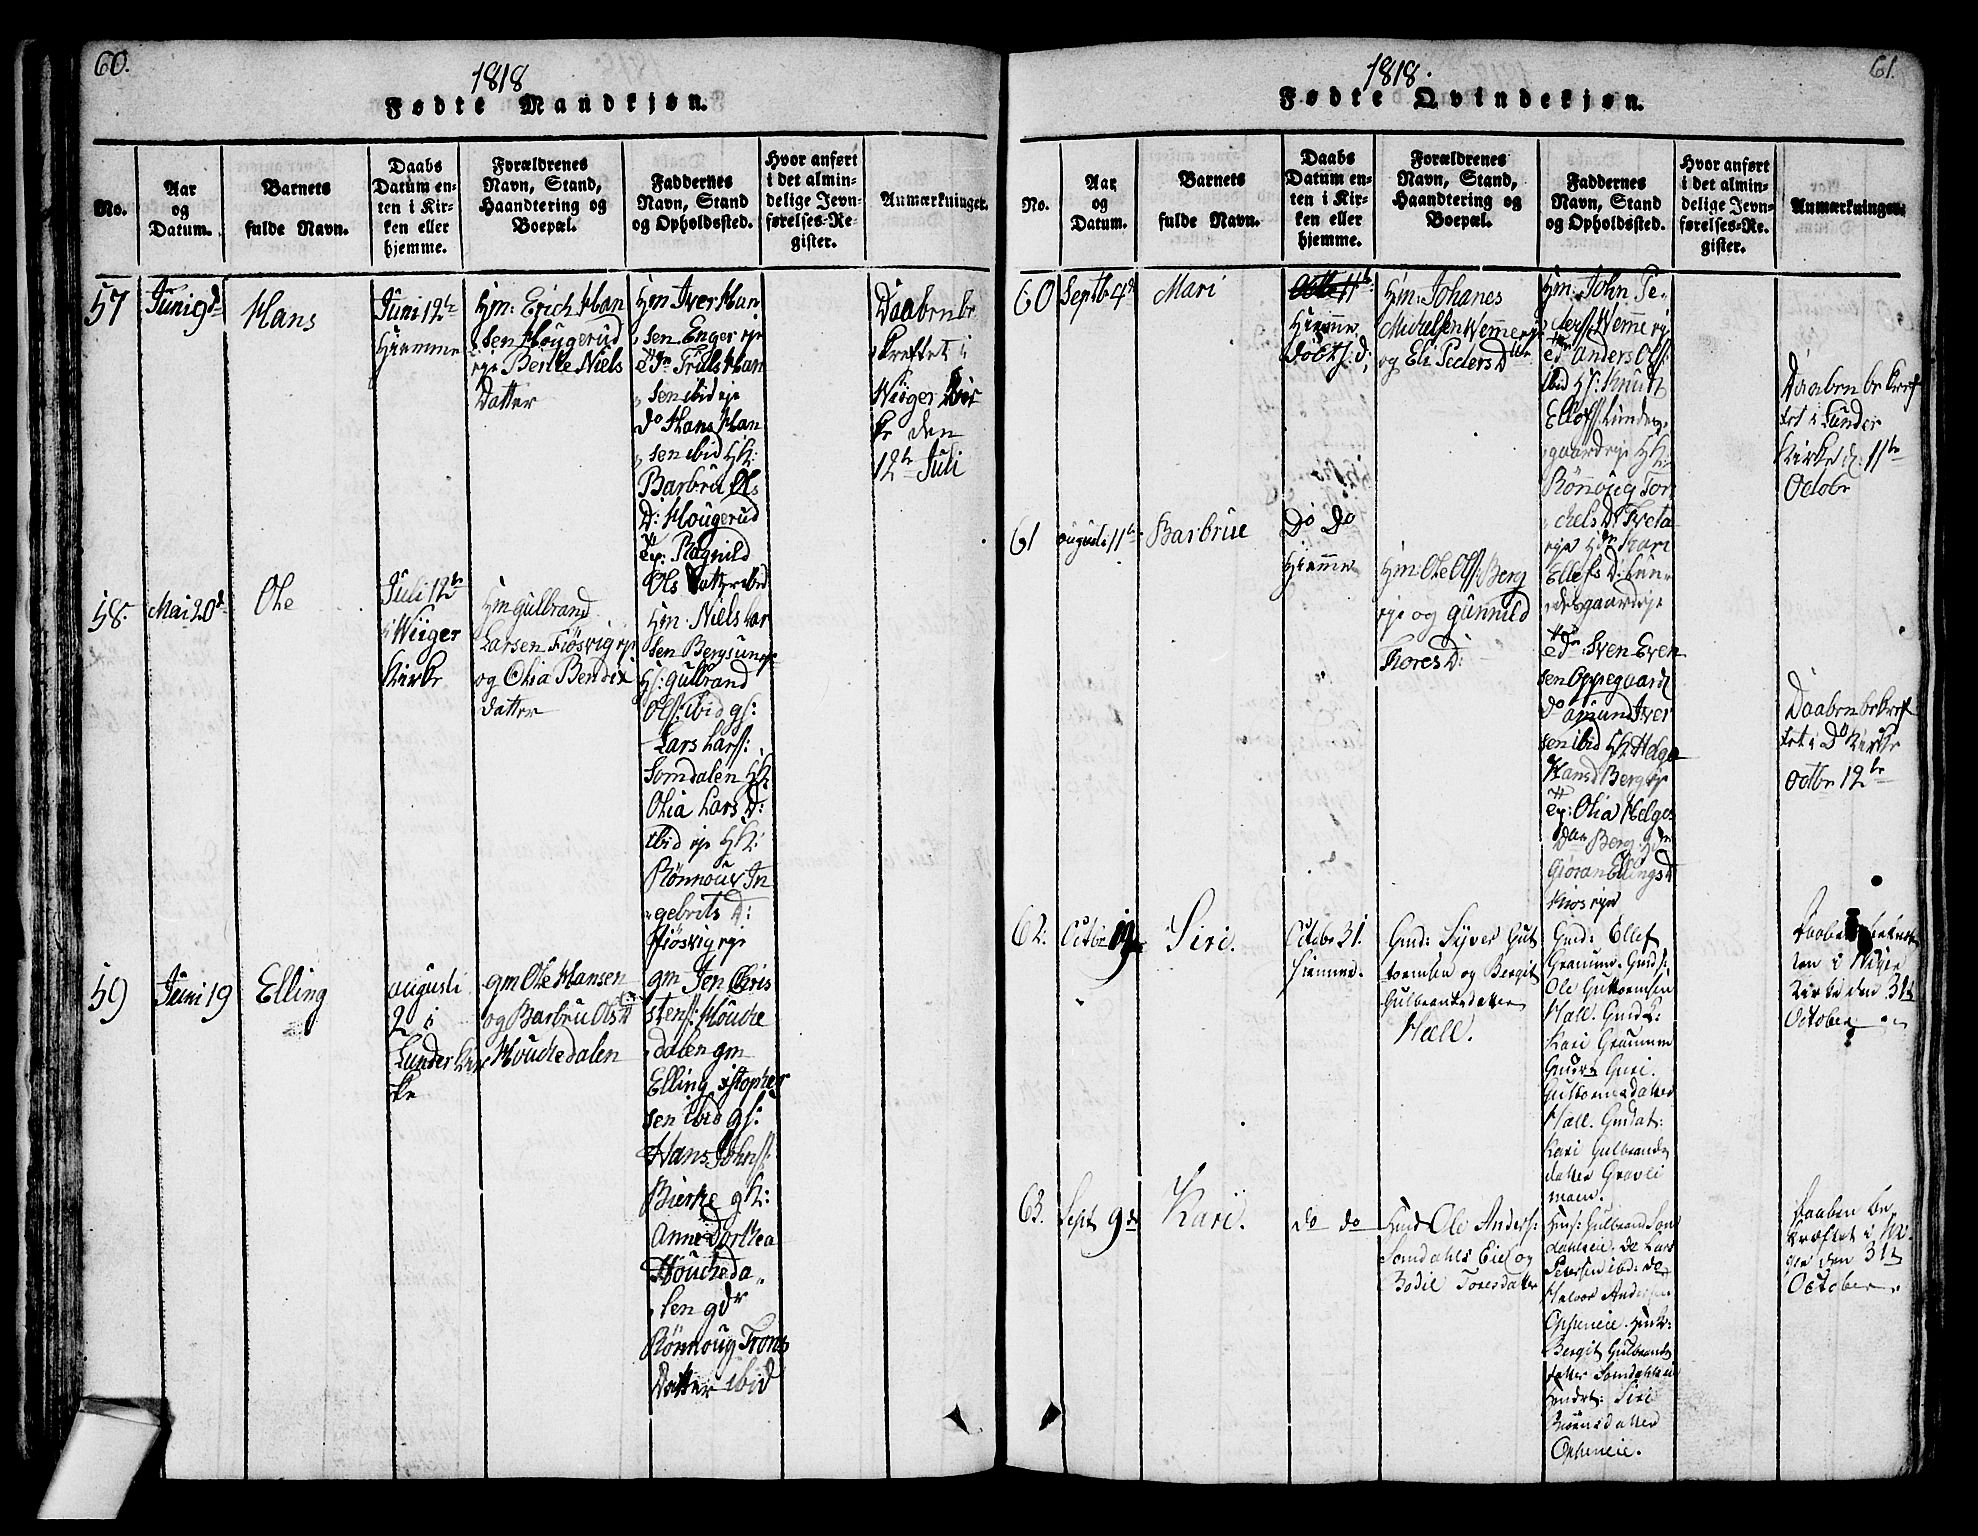 60.
1818
Fødte Mandkjøn.
No.
Aar
og
Datum.
Barnets
fulde Navn.
Daabs
Datum en-
ten i Kir-
ken eller
hjemme.
Forældrenes
Navn, Stand,
Haandtering og
Boepæl.
Faddernes
Navn, Stand
og Opholdssted.
Hvor anført
i det almin-
delige Jevn-
førelses-Re-
gister.
Anmærkninger.
57
Juni 9d
Hans
Juni 12te
Hiemme
Hm: Erich Han
sen Hougerud
eje Berthe Niels
Datter
Hm Iver Han
sen Enger eje
Truls Han
sen ibid eje
do Hans Han
sen ibid HK:
Barbru Ols
D: Hougerud
Ragnild
Ols Datter ibid
Daaben be
kreftet i
Wiiger Kir
ke den
12te Juli
58.
Mai 20d
Ole
Juli 12te
i Wiiger
Kirke
Hm gulbrand
Larsen Fiösvig eje
og Olia Bendix
datter
Hm. Niels Lar
sen Bergsund
HS: gulbrand
Ols: ibid gS:
Lars Lars:
Somdalen HK
Olia Lars D:
ibid eje HK:
Rönnouv In
gebrits D:
Fiösvig eje
59
Juni 19
Elling
augusti
2 i
Lunder Kir
ke
gm Ole Hansen
og Barbru Ols D
Houchedalen
gm Jen Chris
stens: Houche
dalen gm
Elling xstopher
sen ibid gS:
Hans Johns:
Bierke gK:
Anne Dorthea
Houcheda
len gdr
Rönnoug Trons
Datter ibid
61.
1818.
Fødte Qvindekjøn.
No.
Aar
og
Datum.
Barnets
fulde Navn.
Daabs
Datum en-
ten i Kir-
ken eller
hjemme.
Forældrenes
Navn, Stand,
Haandtering og
Boepæl.
Faddernes
Navn, Stand
og Opholdssted.
Hvor anført
i det almin-
delige Jevn-
førelses-Re-
gister.
Anmærkninger.
60
Septb 4d
Mari
Octbr 11te
Hiemme
Döbt
Hm: Johanes
Michelsen Wemme eje
og Eli Peders D
Hm: John Pe
ders: Wemme eje
Anders Ols:
ibid HS: Knud
Ellefs Lunder
gaard eje HK:
Rönnoug Tor
chels D: Tveta
eje Hdr Kari
Ellefs D: Lun
dergaard eje
Daaben bekref
tet i Lunder
Kirke d: 11te
Octobr
61
augusti 11te
Barbrue
Do Do
Hiemme
Hm: Ole Ols: Berg
eje og gunnild
Tores D:
Sven Even
sen Oppegaard
do Amund Iver
sen ibid HK Helge
Hans D Berg eje
Olia Helges
Dat Berg Hdr
Gioran Ellings D
Kios eje
Daaben bekref
tet i Do Kirke
octbr 12te
62.
Octbr 19
Siri.
Octobr 31.
Hiemme.
Gmd: Syver Gut
tormsen og Bergit
Gulbrandsdatter
Hæll.
Gmd: Ellef
Gramme. GmdS:
Ole Guttormsen
Hæll. GmdK:
Kari Gramme
Guri
Guttormsdatter
Hæll. Gmdat:
Kari Gulbrands
datter Gravli
moen.
Daaben
ten i Wiger
Kirke den 31te
October
63.
Sept 9de
Kari.
do do
Hmd Ole Anders:
Somdahls Eie og
Bodil Toresdatter
HmS: Gulbrand Som
dahlseie. do Lars
Petersen ibd: do
Halvor Anders
Opheneie. HmK:
Bergit Gulbrands
datter Somdahlseie
Hmdat: Siri
Biörnsdatter
Opheneie.
Daaben be
kræftet i Wi
ger den 31te
October